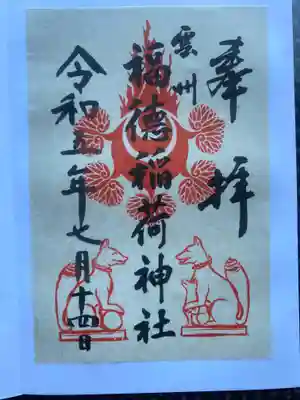 奉拝
雲州
福徳稲荷神社
令和五年七月十四日